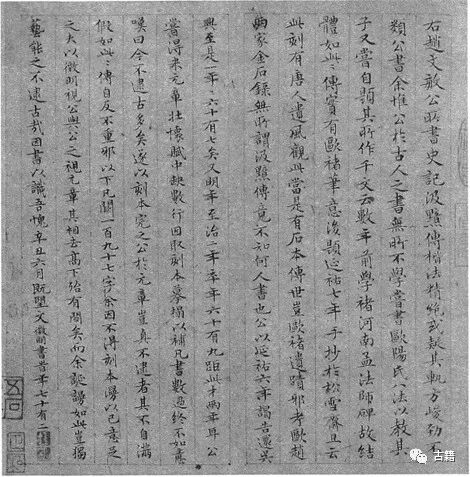 右趙文敏公所書史記汲黯傳楷法精絕或疑其軌方峻勁不
類公書余惟公於古人之書無所不學嘗書歐陽氏八法以教其
子又嘗自題其所作千文云數年前學褚河南孟法師碑故結
體如此〻傳實有歐褚筆意後題延祐七年手抄於松雪齋且云
此刻有唐人遺風觀此當是有石本傳世豈歐褚遺蹟邪考歐趙
兩家金石錄無所謂汲黯傳竟不知何人書也公以延祐六年謁告還吳
興至是一年〻六十有七矣又明年至治二年卒年六十有九距此才兩年耳公
嘗得米元章壯懷賦中缺數行因取刻本摹搨以補凡書數過終不如意
嘆曰今不逮古多矣遂以刻本完之公於元章豈真不逮者其不自滿
假如此〻傳自反不重邪以下凡闕一百九十七字余因不得刻本漫以己意足
之夫以徵明視公與公之視元章其相去高下殆有間矣而余誕謾如此豈獨
藝能之不逮古哉因書以識吾愧辛丑六月既望文徵明書旹年七十有二
古籍